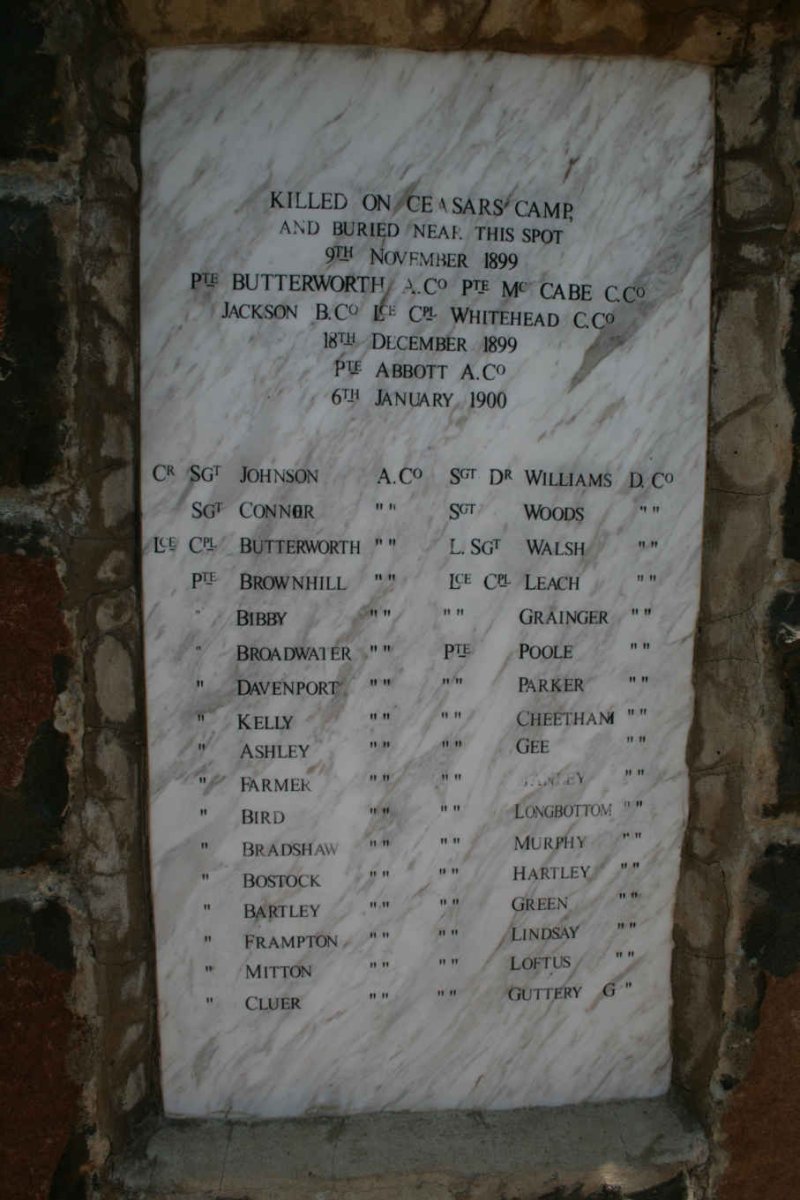 KILLED ON CEASARS' CAMP,
AND BURIED NEAR THIS SPOT
9TH NOVEMBER 1899
PTE BUTTERWORTH A.CO PTE MC CABE C.CO
JACKSON B.CO LCE CPL WHITEHEAD C.CO
18TH DECEMBER 1899
PTE ABBOTT A.CO
6TH JANUARY 1900
CR SGT JOHNSON A.CO SGT DR WILLIAMS D.CO
SGT CONNOR " " SGT WOODS " "
LCE CPL BUTTERWORTH " " L.SGT WALSH " "
PTE BROWNHILL " " LCE CPL LEACH " "
" BIBBY " " " " GRAINGER " "
" BROADWATER " " PTE POOLE " "
" DAVENPORT " " " " PARKER " "
" KELLY " " " " CHEETHAM " "
" ASHLEY " " " " GEE " "
" FARMER " " " " " "
" BIRD " " " " LONGBOTTOM " "
" BRADSHAW " " " " MURPHY " "
" BOSTOCK " " " " HARTLEY " "
" BARTLEY " " " " GREEN " "
" FRAMPTON " " " " LINDSAY " "
" MITTON " " " " LOFTUS " "
" CLUER " " " " GUTTERY G "